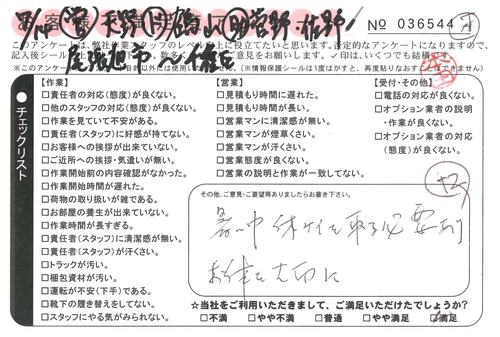 No 036544
このアンケートは、弊社作業スタッフのレベル向上に役立てたいと思います。否定的なアンケートになりますので、
【作業】
□責任者の対応(態度)が良くない。
□他のスタッフの対応(態度)が良くない。
□作業を見ていて不安がある。
□責任者(スタッフ)に好感が持てない。
□お客様への挨拶が出来ていない。
□ご近所への挨拶・気遣いが無い。
□作業開始前の内容確認がなかった。
□作業開始時間が遅れた。
□荷物の取り扱いが雑である。
□お部屋の養生が出来ていない。
□作業時間が長すぎる。
□責任者(スタッフ)に清潔感が無い。
□責任者(スタッフ)が汗くさい。
□トラックが汚い。
□梱包資材が汚い。
□運転が不安(下手)である。
□靴下の履き替えをしてない。
□スタッフにやる気がみられない。
チェックリスト
【営業】
□見積もり時間に遅れた。
□見積もり時間が長い。
□営業マンに清潔感が無い。
□営業マンが煙草くさい。
□営業マンが汗くさい。
□営業態度が良くない。
□営業の説明と作業が一致してない。
【受付・その他】
□電話の対応が良くない。
□オプション業者の説明
・作業が良くない。
□オプション業者の対応
(態度)が良くない。
その他、ご意見・ご要望等ありましたらお書き下さい。
暑い中 休ケイを取る必要あり
お体を大切に
☆当社をご利用いただきまして、ご満足いただけたでしょうか?
□不満 □やや不満 □普通 □やや満足 □満足